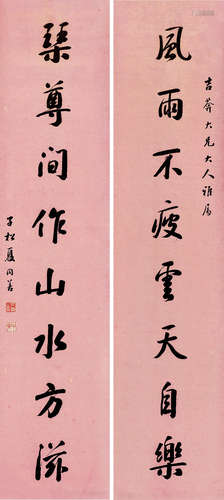 吉大兄大人雅属
風雨不疲雲天自樂
琹尊间作山水方滋
子松夏同善